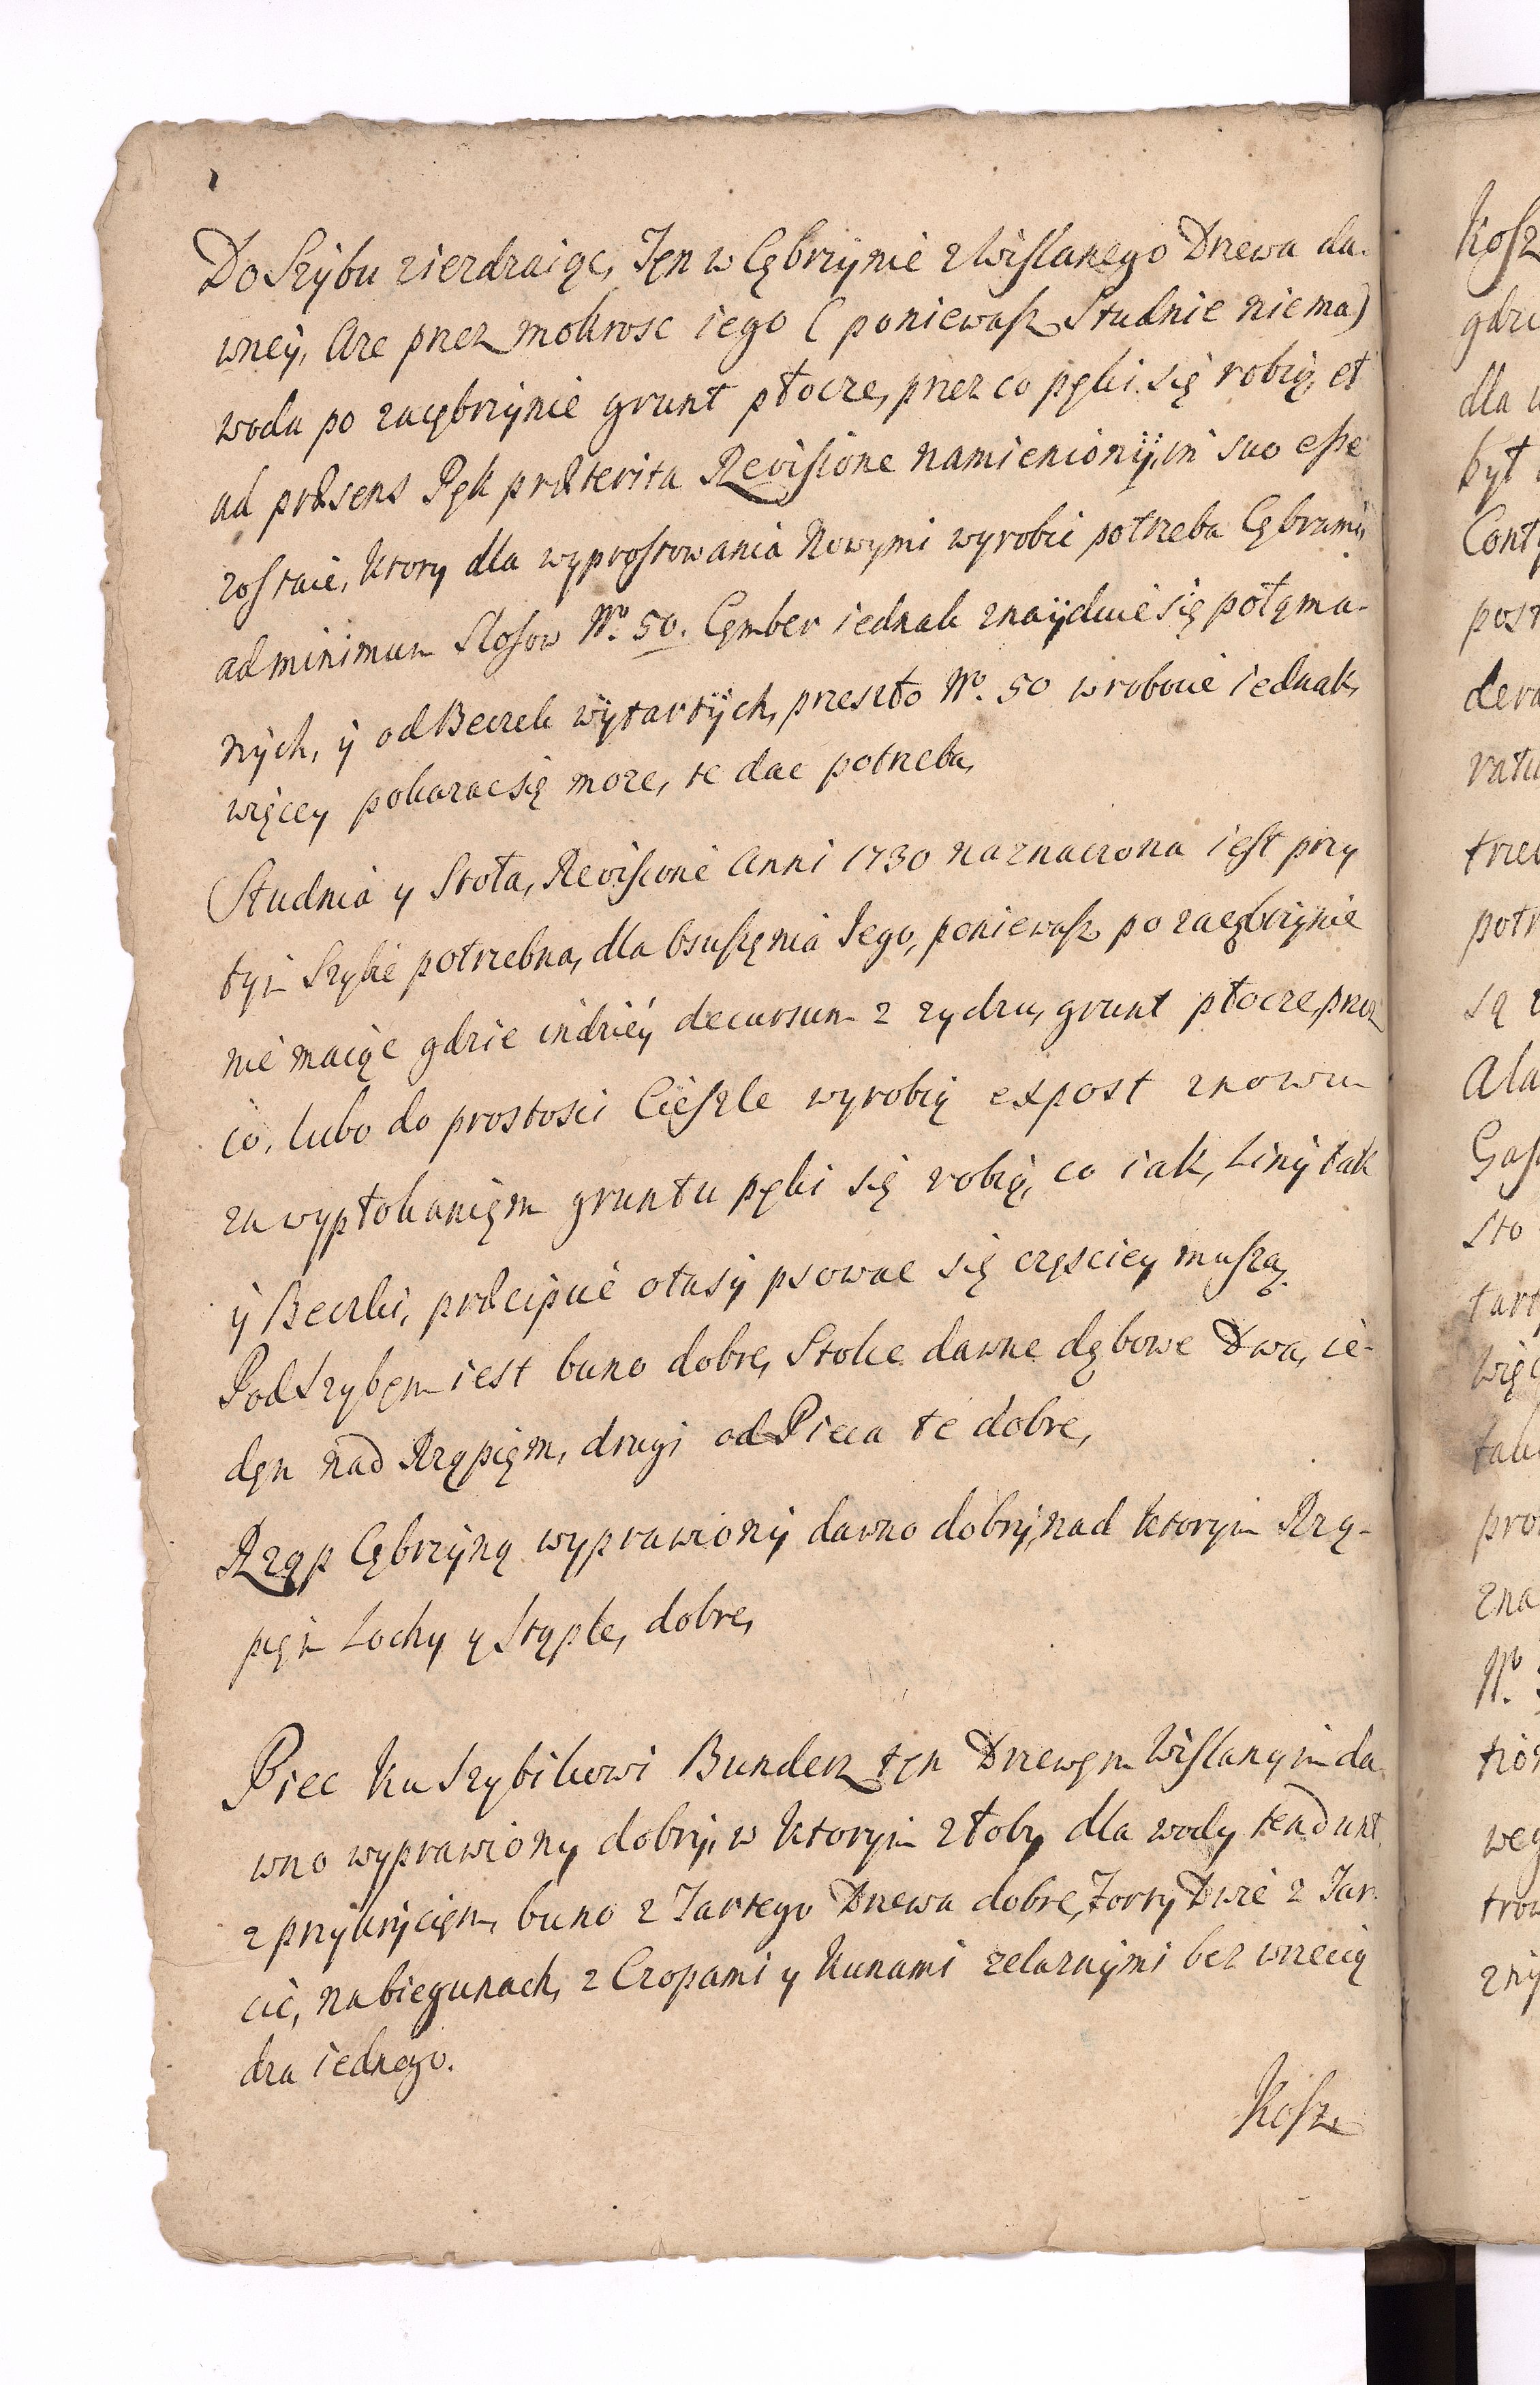 Do Szybu zierdzaiąc, Ten w Cębrzynie z Wislanego Drzewa da-
wney, Aze przez mokrosc iego (poniewasz Studnie niema)
woda po zacębrzynie grunt płocze, przez co pęki się robią, et
ad præsens Pęk præterita Revisione namieniony, in suo esse
zostaie, ktory dla wyprostowania Nowymi wyrobic potrzeba Cębrami,
ad minimum Slosow No. 50. Cęmber iednak znayduie się połąma-
nych, y od Beczek wytartych, przeszło No. 50 w robocie iednak,
więcey pokazac się moze, te dac potrzeba,
Studnia y Stoła, Revisione Anni 1730 naznaczona iest przy
tym Szybie potrzebna, dla Osuszęnia Iego, poniewasz po zacębrzynie
nie maiąc gdzie indziey decursum z zydzu, grunt płocze, przez
co, lubo do prostosci Cieszle wyrobią expost znowu
za wypłokanięm gruntu pęki się robią, co iak, Liny tak
y Beczki, præcipue otasy psowac się częsciey muszą.
Pod Szybęm iest buno dobre, Stolce dawne dębowe Dwa, ie-
dęn nad Rząpięm, drugi od Pieca te dobre,
Rząp Cębrzyną wyprawiony dawno dobry, nad ktorym Rzą-
pięm Lochy y Stęple, dobre,
Piec ku Szybikowi Bunderz tęn Drzewęm Wislanym da-
wno wyprawiony dobry, w ktorym złoby dla wody tendunt
z przykrycięm, buno z Tartego Drzewa dobre, Forty Dwie z Tar-
cic, na biegunach, z Czopami y Kunami zelaznymi bez wrzecią
dza iednego.
Kosz